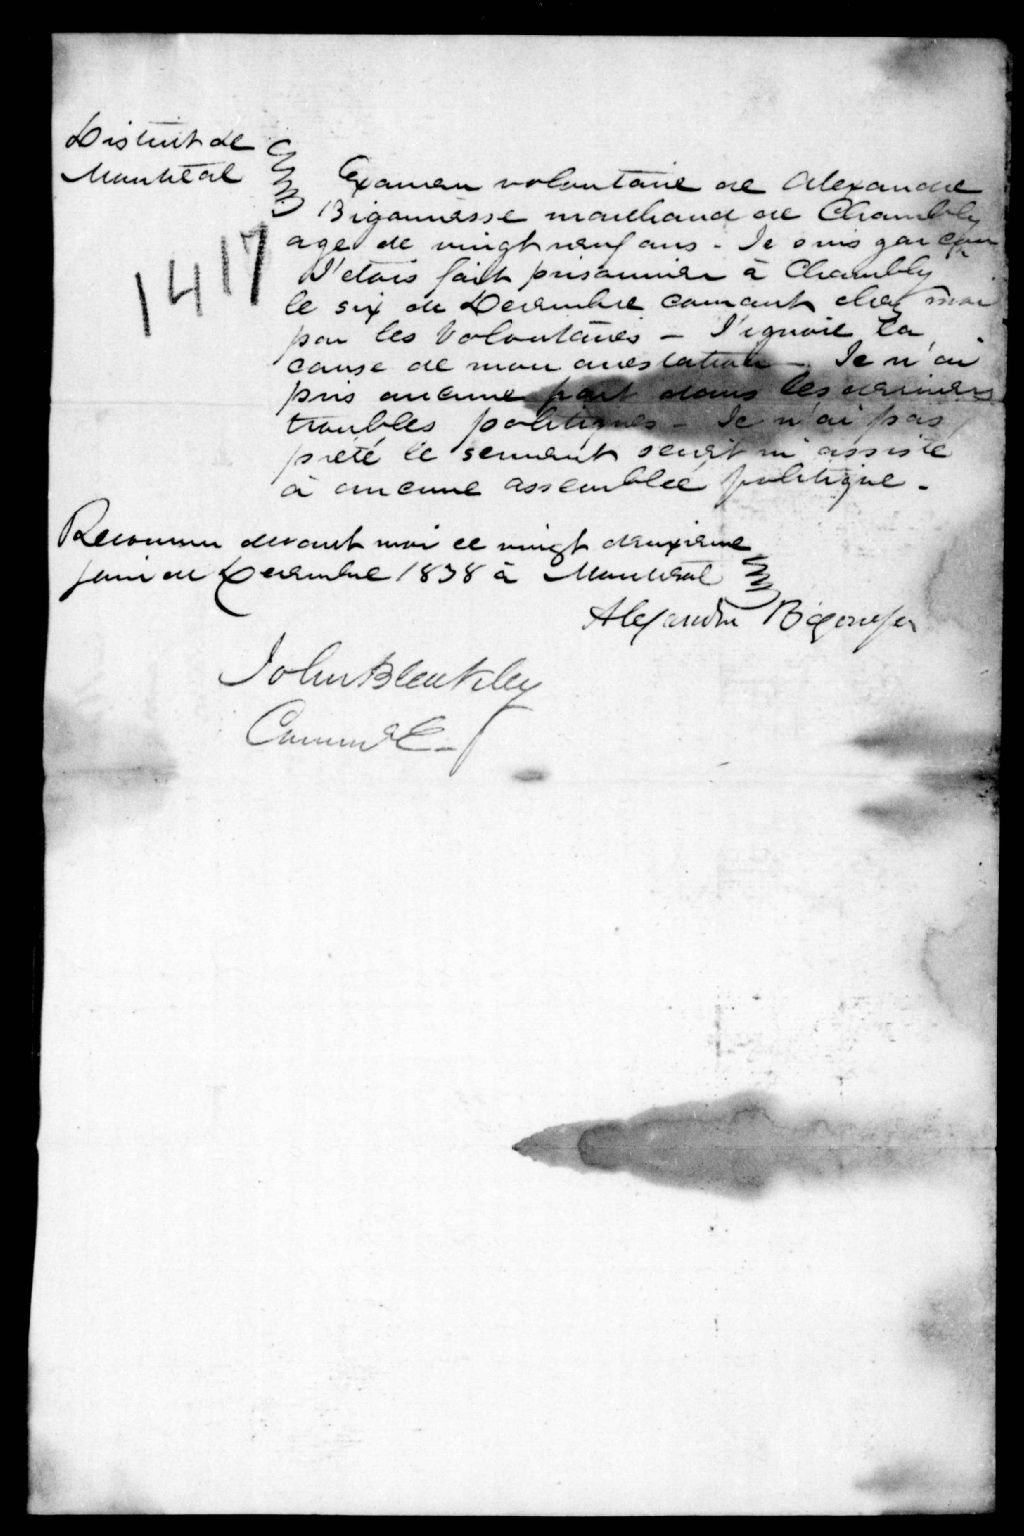 District de
Montréal
Examen volontaire de Alexandre
Bigonnesse marchand de Chambly
age de vingt neuf ans - Je suis garçon
J'etois fait prisonnier à Chambly
le six de Decembre courant chez moi
par les Volontaires - J'ignore la
cause de mon arrestation - Je n'ai
pris aucune part dans les derniers
troubles politiques - Je n'ai pas
prété le serment secret ni assisté
à aucune assemblée politique -
1417
Reconnu devant moi ce vingt deuxieme
jour de Decembre 1838 à Montréal
Alexandre Bigonesse
John Bleakley